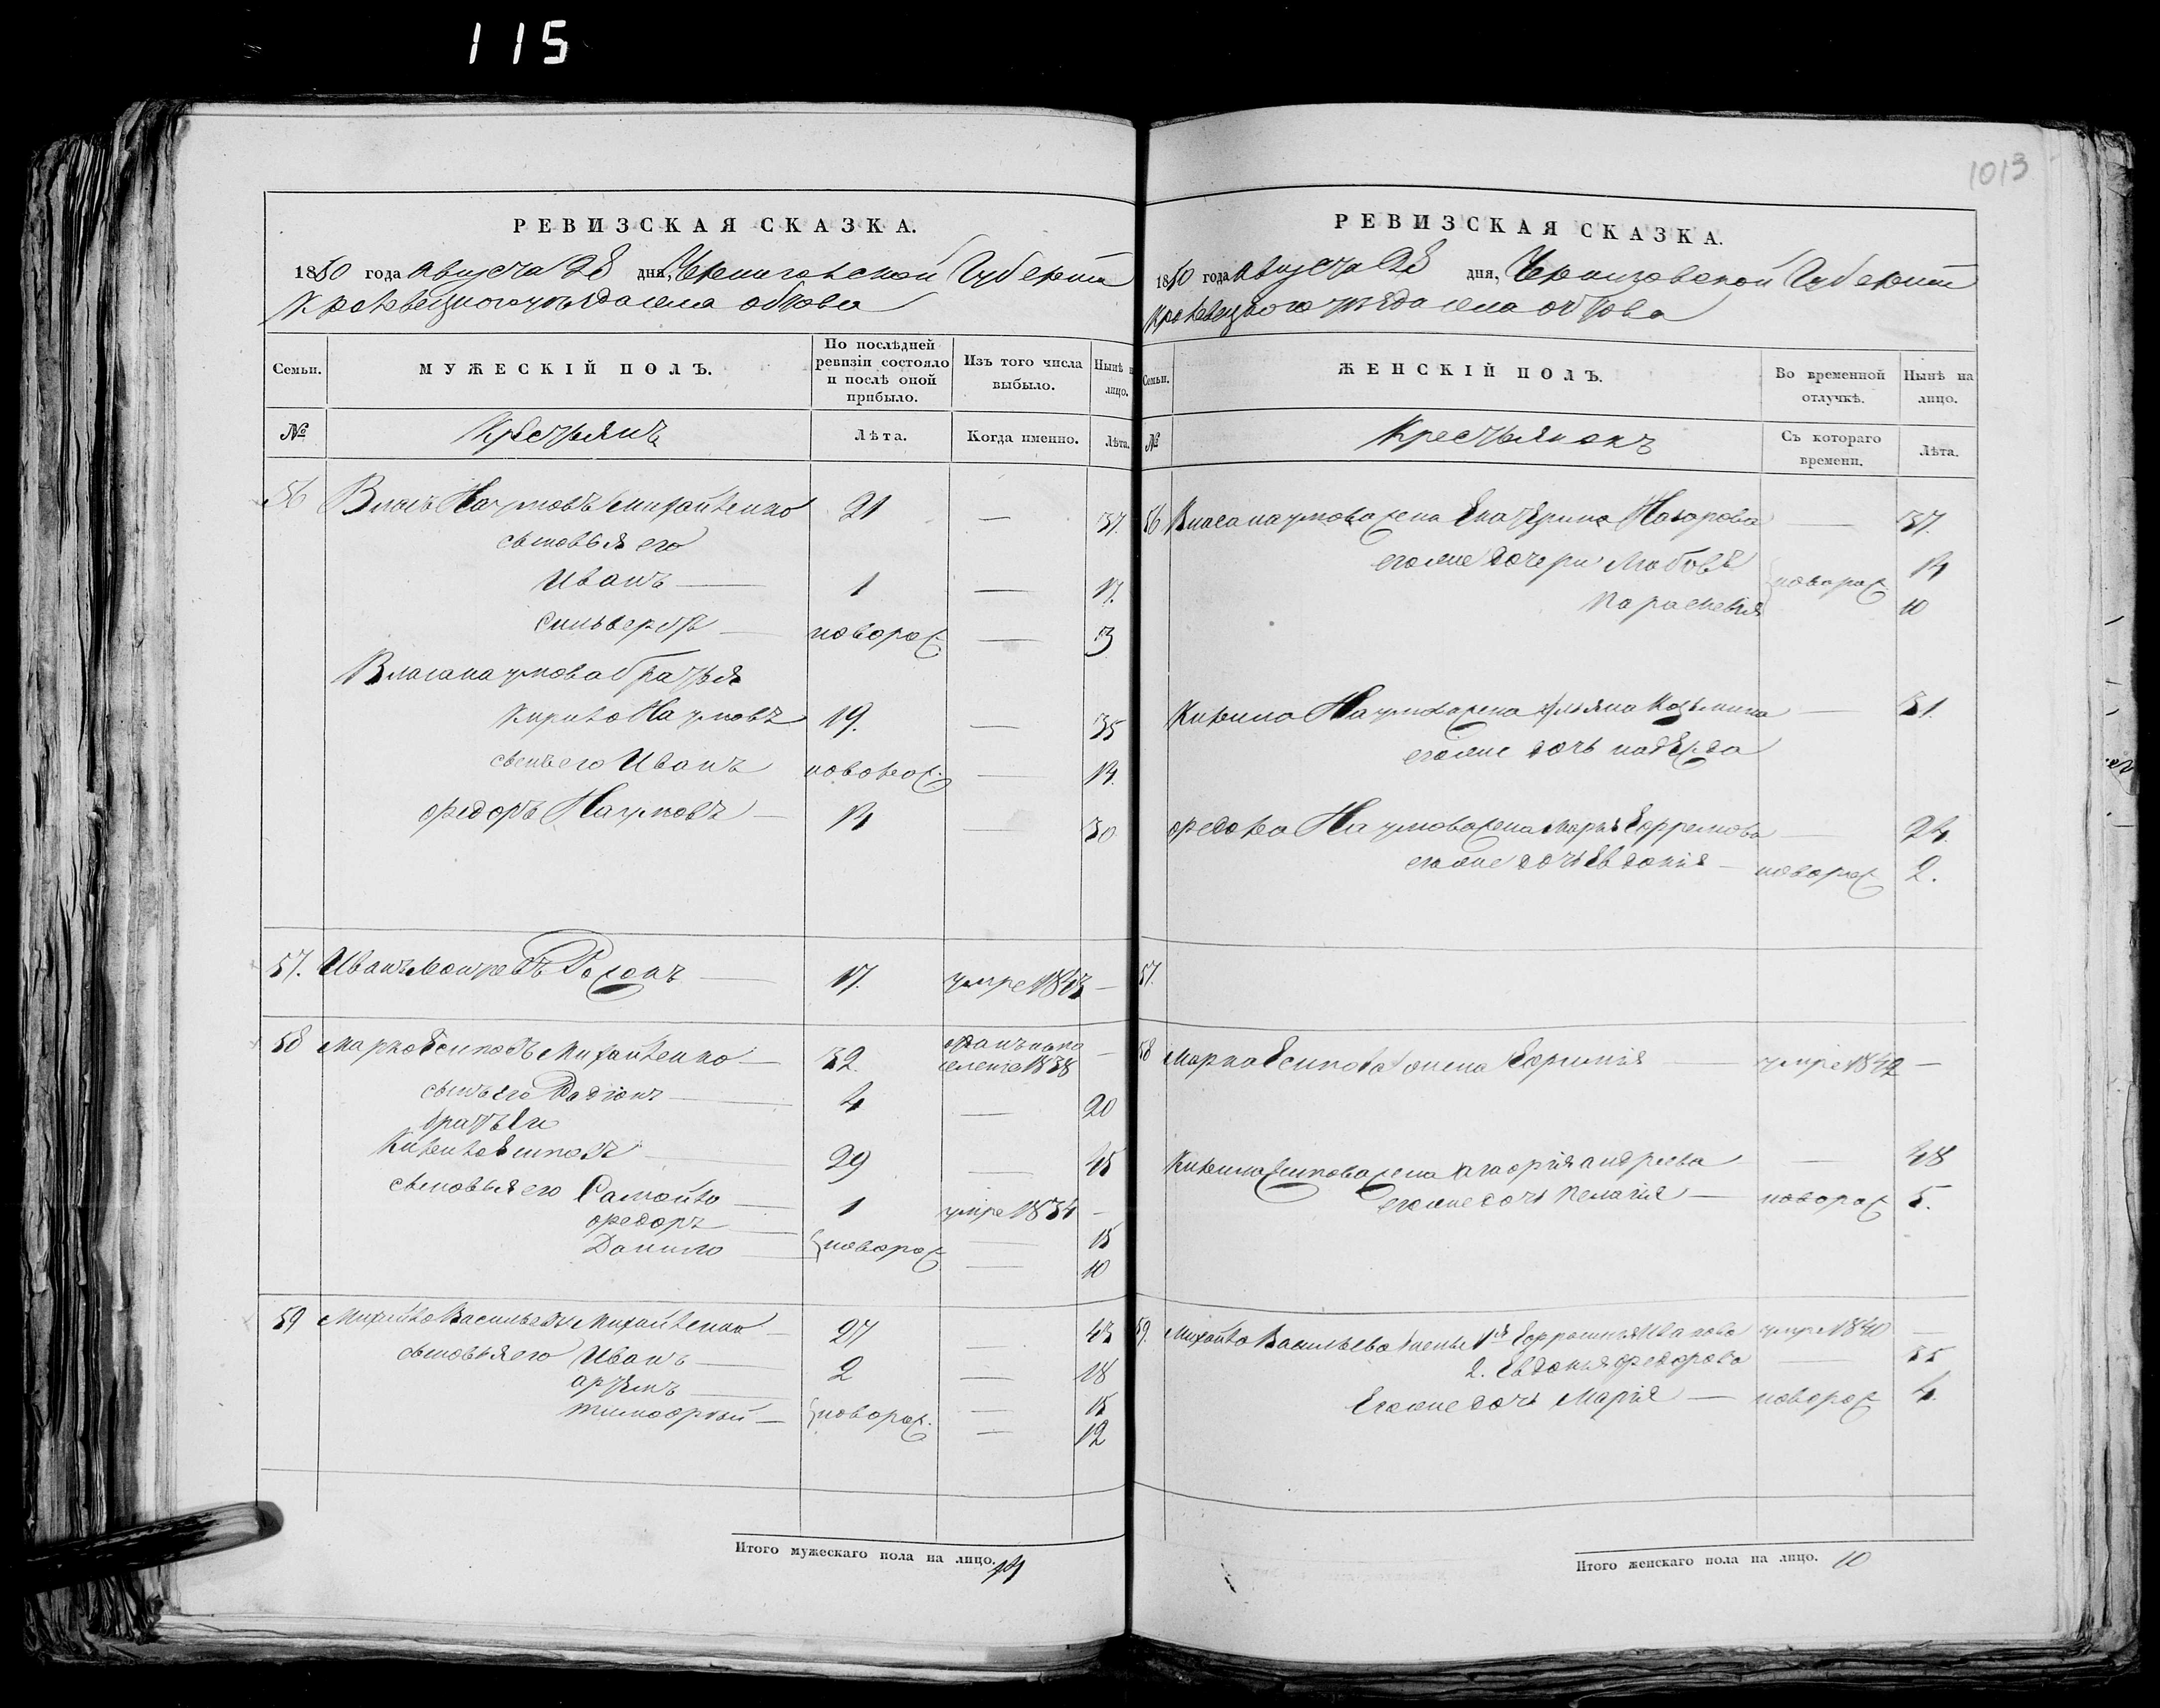 115
1013
РЕВИЗСКАЯ СКАЗКА.
1850 года Августа 28 дня, Черниговской Губернии
Кролевецкого уезда села
Семьи.
МУЖЕСКІЙ ПОЛЪ.
По послѣдней ревизіи состояло и послѣ оной прибыло.
Изъ того числа выбыло.
Нынѣ на лицо.
№
Крестьянъ
Лѣта.
Когда именно.
Лѣта.
56 Власъ Наумовъ Михайленко 21 — 37.
сыновья его
Иванъ — 1 — 17.
Сильверстъ — новорож — 3
Власа Наумова братья
Кирило Наумовъ 19. — 35
сынъ его Иванъ новорож. — 14.
Федоръ Наумовъ — 14 — 30
57. Иванъ — 17. умре 1833 —
58 Марко Есиповъ Михайленко — 32. 1838 —
сынъ его Радіонъ — 4 — 20
братъ
Кирило Есиповъ — 29 — 45
сыновья его Самойло — 1 умре 1834 —
Федоръ — новорож — 15
Данило — 10
59 Михайло Васильевъ Михайленко — 27 43
сыновья его Иванъ — 2 — 18
Артемъ — новорож. — 15
Тимофей — — 12
Итого мужескаго пола на лицо. 14
РЕВИЗСКАЯ СКАЗКА.
1850 года Августа 28 дня, Черниговской Губернии
Кролевецкого уезда села
Семьи.
ЖЕНСКІЙ ПОЛЪ.
Во временной отлучкѣ.
Нынѣ на лицо.
№
Крестьянокъ
Съ котораго времени.
Лѣта.
56 Власа Наумова жена Екатерина Назарова — 37.
его же дочери Любовь новорож 14
Параскевия 10
Кирила Наумова жена Ульяна Козьмина — 31.
его же дочь Надежда
Федора Наумова жена Марья Ефремова — 24.
его же дочь Евдокия — новорож 2.
57.
58 Марка Есипова жена Ефимия — умре 1842 —
Кирила Есипова жена Агафия Андреева — 48
его же дочь Пелагия — новорож 5.
59. Михайла Васильева жены 1я Ефросиния Иванова умре 1840 —
2. Евдокия Федорова — 35
Его же дочь Мария — новорож 4.
Итого женскаго пола на лицо. 10